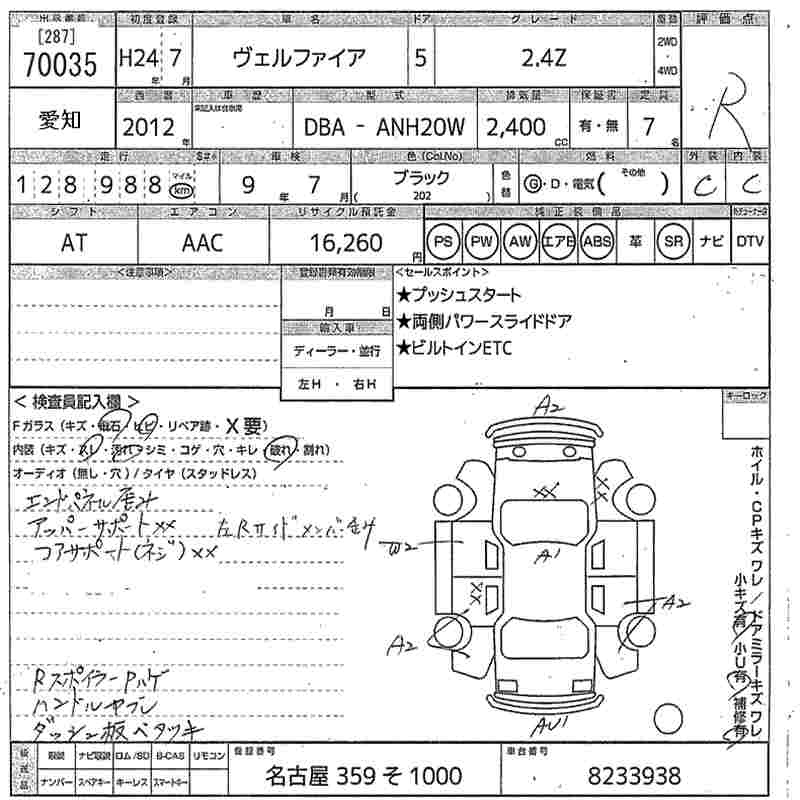 [287]
70035
初度登録
車名
ドア
グレード
評価点
H24 7
年 月
ヴェルファイア
5
2.4Z
2WD
4WD
R
愛知
西暦
車歴
型式
排気量
保証書
定員
2012
年
DBA - ANH20W
2,400
CC
有・無
7
名
走行
車検
色(Col.No)
燃料
外装
内装
128988
マイル
km
9 年 7 月
ブラック
( 202 )
色替
G・D・電気( その他 )
C
C
シフト
エアコン
リサイクル預託金
純正装備品
AT
AAC
16,260
円
PS PW AW エアB ABS 革 SR ナビ DTV
<注意事項>
登録書類有効期限
<セールスポイント>
月 日
★プッシュスタート
輸入車
★両側パワースライドドア
ディーラー・並行
★ビルトインETC
左H ・ 右H
<検査員記入欄>
キーロック
Fガラス(キズ・飛石・ヒビ・リペア跡・X要)
内装(キズ・スレ・汚れ・シミ・コゲ・穴・キレ・破れ・割れ)
オーディオ(無し・穴)/タイヤ(スタッドレス)
エンドパネル歪み
アッパーサポートXX 左Rサイドメンバー歪み
コアサポート(ネジ)XX
Rスポイラー Pハゲ
ハンドルヤブレ
ダッシュ板ベタツキ
A2
XX
XX
W2
A1
XX
A2
A2
AU1
ホイル・CPキズ ワレ/ドアミラーキズ ワレ
小キズ有/小U有/補修有
後送品
取説 ナビ取説 ロム/SD B-CAS リモコン
ナンバー スペアキー キーレス スマートキー
登録番号
車台番号
名古屋 359 そ 1000
8233938